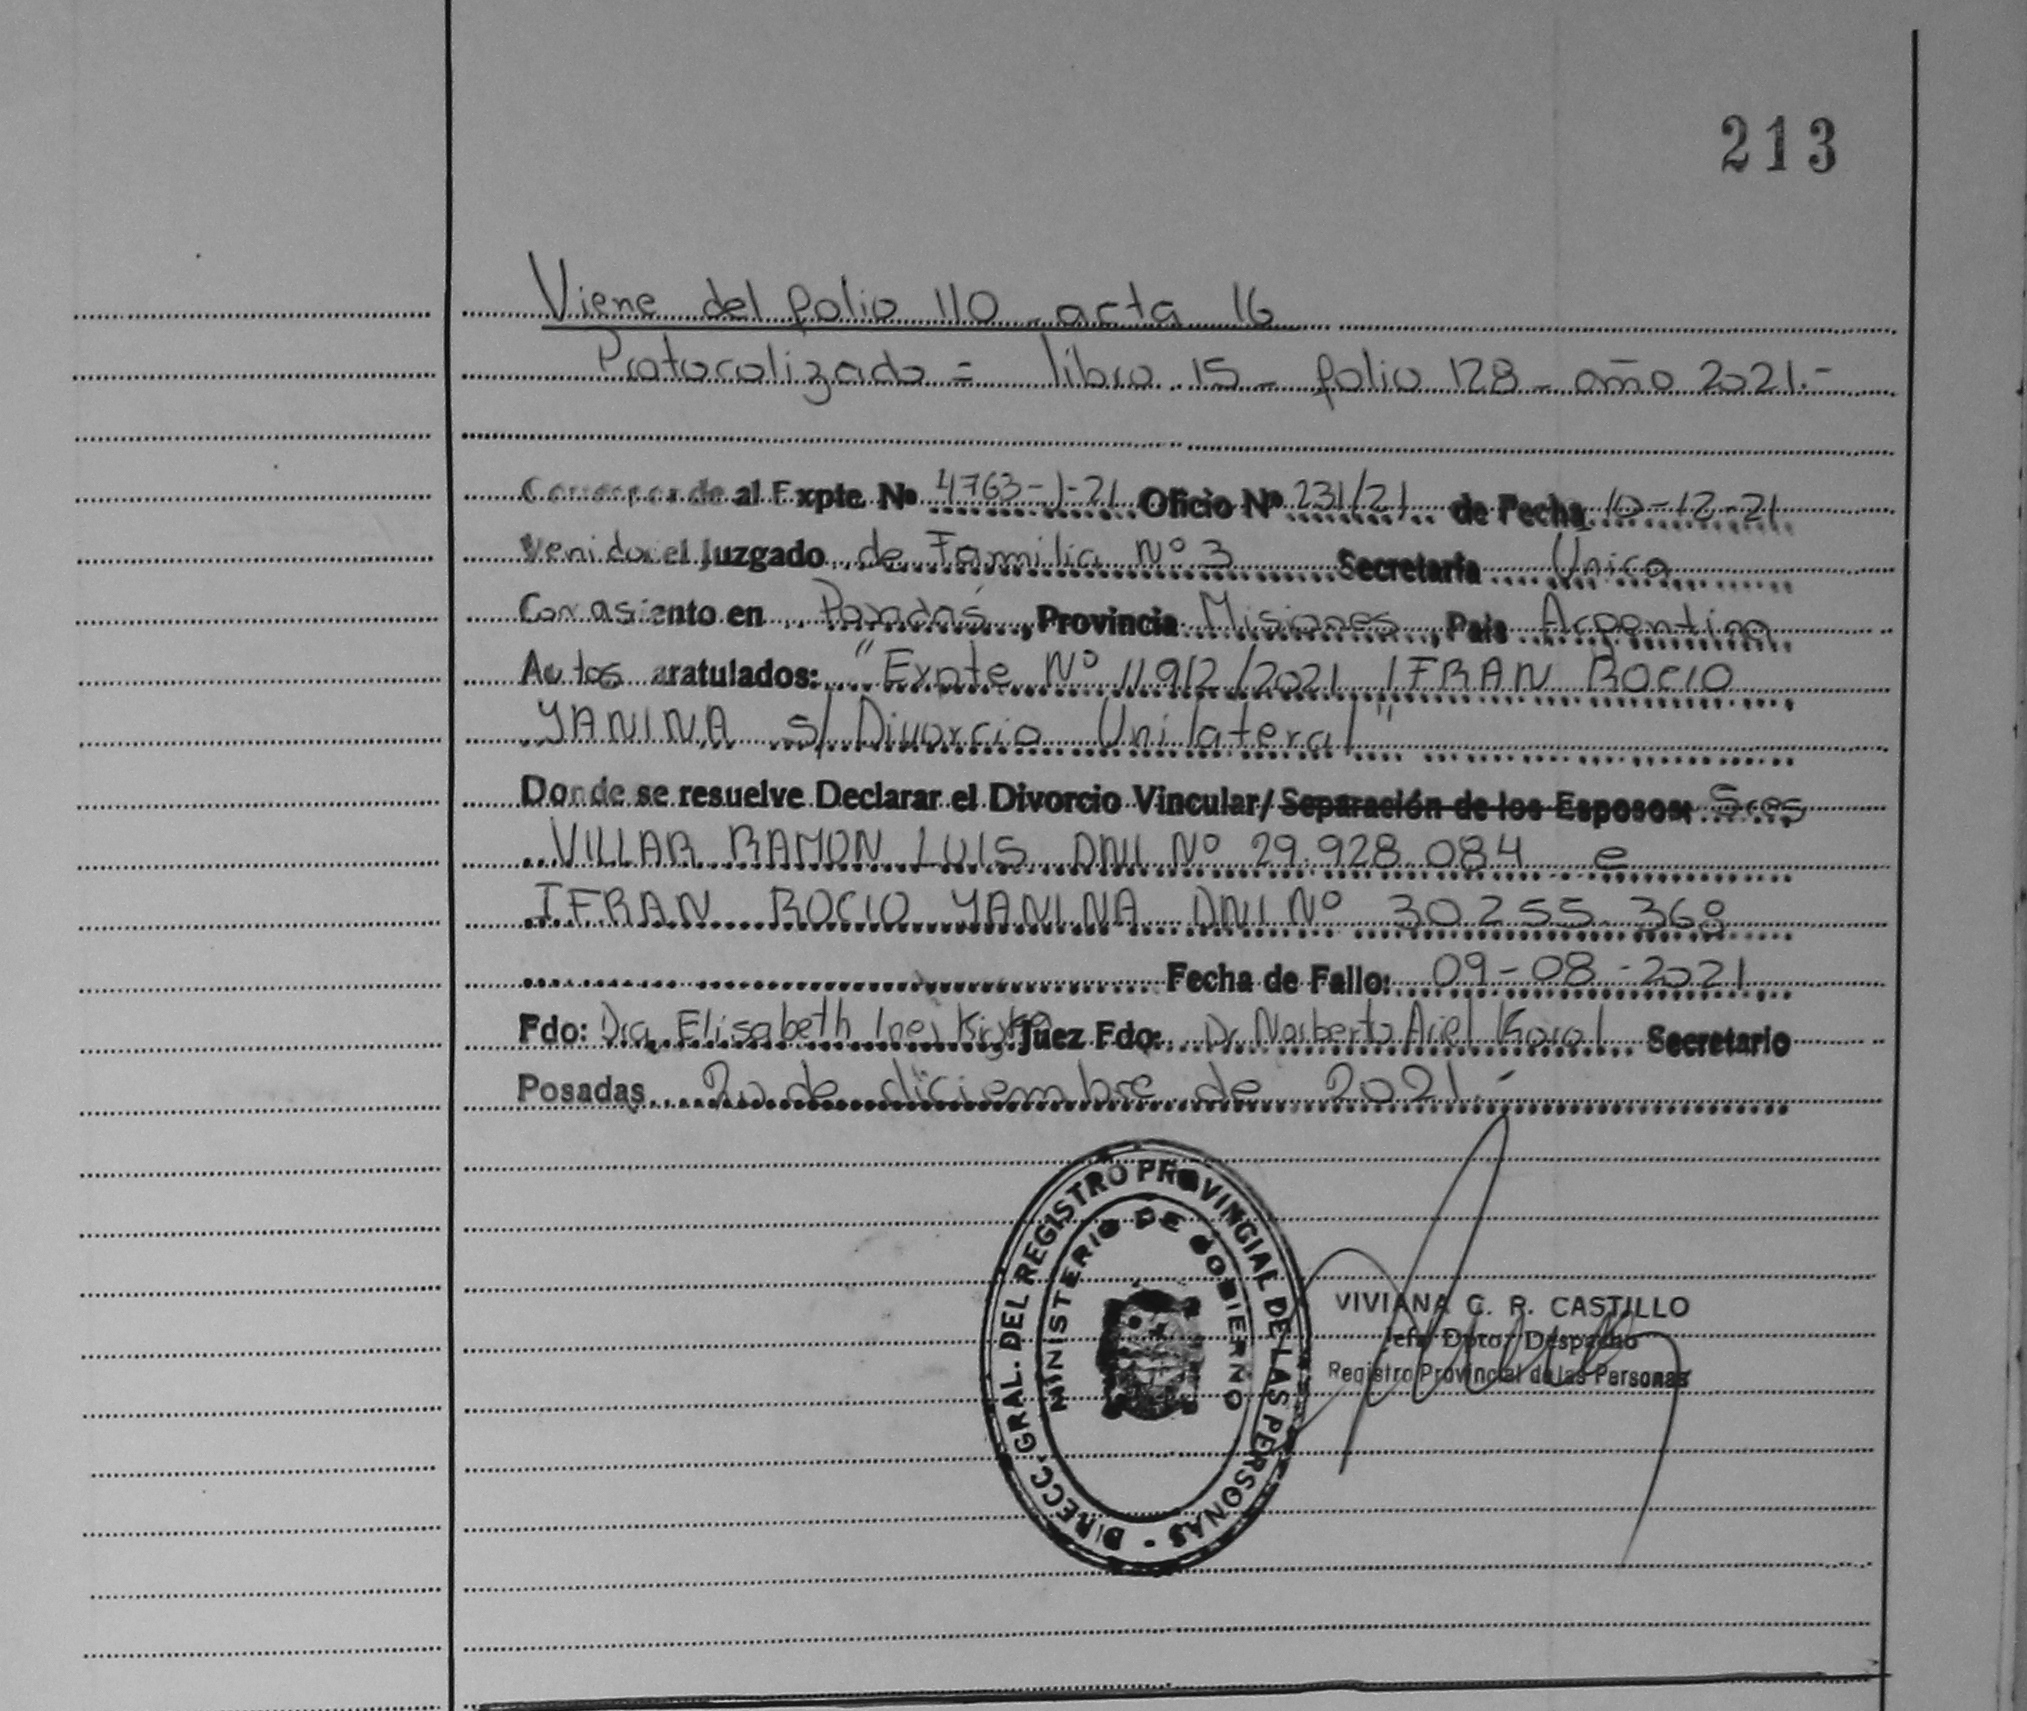 213
Viene del folio 110 - acta 16
Protocolizado = libro 15 - folio 128 - año 2021.-
Corresponde al Expte Nº 4763-1-21 Oficio Nº 231/21 de Fecha 10-12-21
Venido el Juzgado de Familia Nº 3 Secretaría Única
Con asiento en Posadas, Provincia Misiones, País Argentina
Autos caratulados: "Expte Nº 11912/2021 IFRAN ROCIO
YANINA s/ Divorcio Unilateral"
Donde se resuelve Declarar el Divorcio Vincular/ Separación de los Esposos: Sres
VILLAR RAMON LUIS DNI Nº 29.928.084 e
IFRAN ROCIO YANINA DNI Nº 30.255.368
Fecha de Fallo: 09-08-2021
Fdo: Dra. Elisabeth Ines Juez Fdo: Dr. Norberto Ariel Korol Secretario
Posadas 20 de diciembre de 2021.-
DIRECC. GRAL. DEL REGISTRO PROVINCIAL DE LAS PERSONAS -
MINISTERIO DE GOBIERNO
VIVIANA G. R. CASTILLO
Jefa Dpto. Despacho
Registro Provincial de las Personas